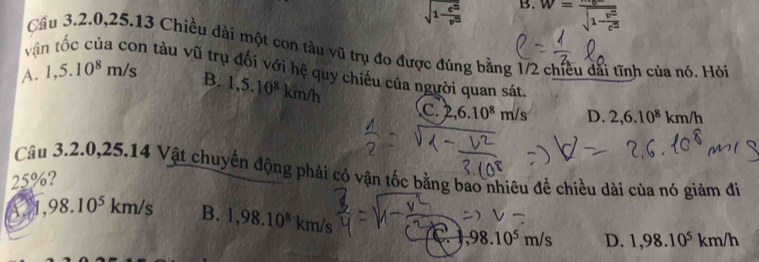 B. W =
Câu 3.2.0,25.13 Chiều dài một con tàu vũ trụ đo được đúng bằng 1/2 chiều dài tĩnh của nó. Hỏi
vận tốc của con tàu vũ trụ đối với hệ quy chiếu của người quan sát.
l = 1/2 l₀
A. 1,5.10⁸ m/s B. 1,5.10⁸ km/h C. 2,6.10⁸ m/s D. 2,6.10⁸ km/h
1/2 = √(1 - v²/3.10⁸) => V = 2,6.10⁸ m/s
Câu 3.2.0,25.14 Vật chuyển động phải có vận tốc bằng bao nhiêu để chiều dài của nó giảm đi
25%?
3/4 = √(1 - v²/c²) => V =
A. 1,98.10⁵ km/s B. 1,98.10⁸ km/s C. 1,98.10⁵ m/s D. 1,98.10⁵ km/h